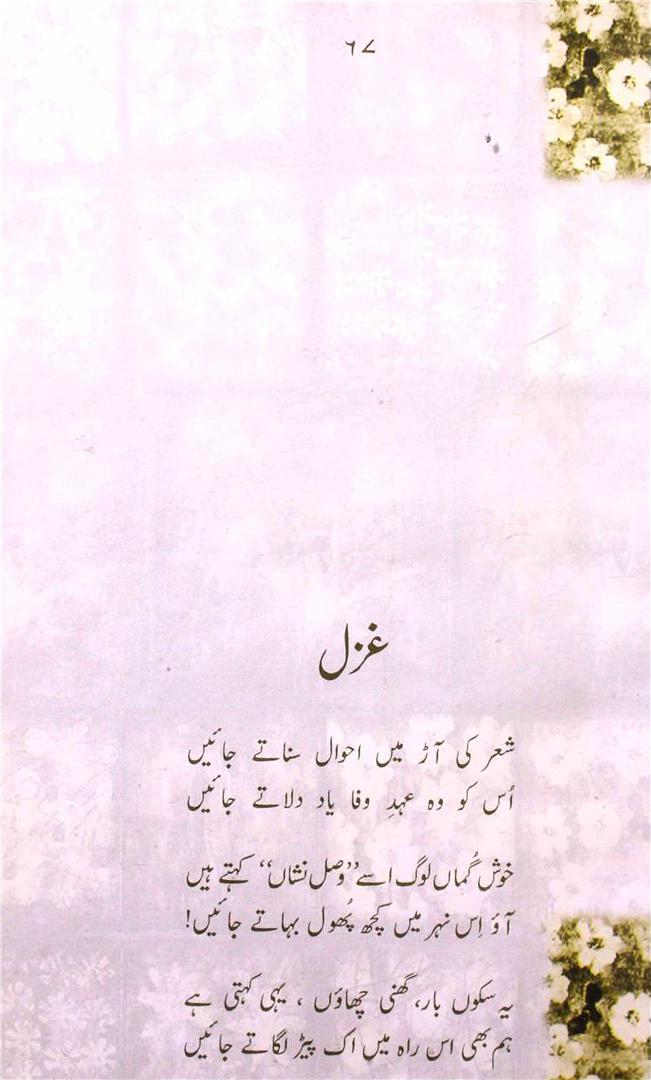 ۶۷
غزل
شعر کی آڑ میں احوال سناتے جائیں
اُس کو وہ عہدِ وفا یاد دلاتے جائیں
خوش گُماں لوگ اسے ’’وصل نشاں‘‘ کہتے ہیں
آؤ اِس نہر میں کچھ پُھول بہاتے جائیں!
یہ سکوں بار، گھنی چھاؤں ، یہی کہتی ہے
ہم بھی اس راہ میں اک پیڑ لگاتے جائیں